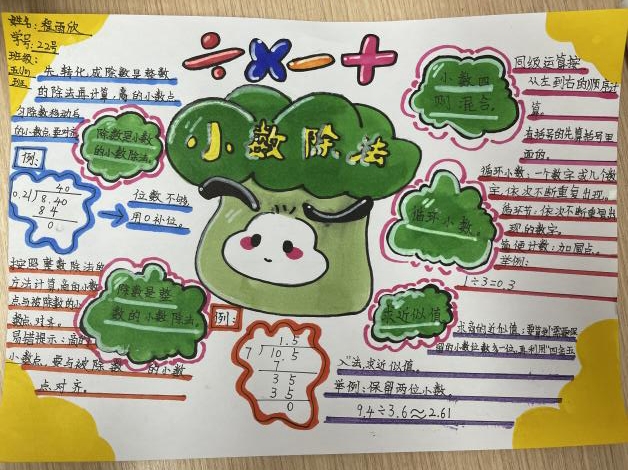 姓名:程雨欣
学号:22号
班级:
五(1)班
先转化成除数是整数
的除法再计算,商的小数点
的小数点要对齐
除数是小数
的小数除法。
例:
40
0.21 8.40
8 4
0
位数不够
用0补位。
按照整数除法的
方法计算,商的小数
点与被除数的小
数点对齐。
易错提示:商的
小数点,要与被除数的小数
点对齐。
除数是整
数的小数除法。
例:
1.5
7 10.5
7
3 5
3 5
0
÷×-+
小数除法
小数四
则混合。
同级运算按
从左到右的顺序计
算。
有括号的先算括号里
面的。
循环小数。
循环小数:一个数字或几个数
字依次不断重复出现。
循环节:依次不断重复出
现的数字。
简便计数:加圆点。
举例:
1÷3=0.3
求近似值
求商的近似值:要算到需要保
留的小数位数多一位,再利用“四舍五
入”法求近似值。
举例:保留两位小数
9.4÷3.6≈2.61